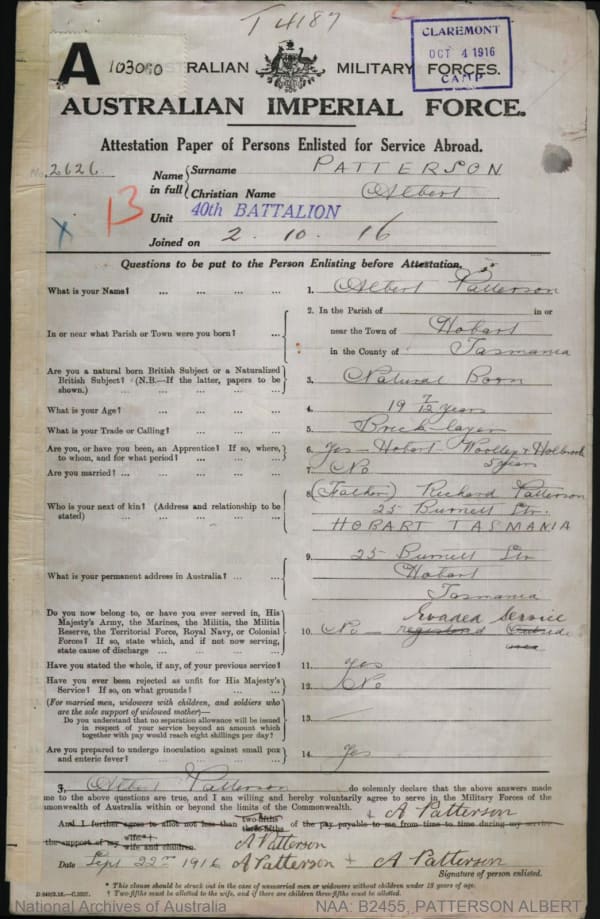 T 4187
CLAREMONT
OCT 4 1916
CAMP
A 103050
TRALIAN MILITARY FORCES.
AUSTRALIAN IMPERIAL FORCE.
Attestation Paper of Persons Enlisted for Service Abroad.
No. 2626
Name in full { Surname PATTERSON
Christian Name Albert
B
X
Unit 40th BATTALION
Joined on 2. 10. 16
Questions to be put to the Person Enlisting before Attestation.
What is your Name? ... ... ... ... 1. Albert Patterson
In or near what Parish or Town were you born? ... 2. In the Parish of in or
near the Town of Hobart
in the County of Tasmania
Are you a natural born British Subject or a Naturalized
British Subject? (N.B.—If the latter, papers to be
shown.) ... ... ... ... 3. Natural Born
What is your Age? ... ... ... ... 4. 19 7/12 years
What is your Trade or Calling? ... ... ... 5. Brick-layer
Are you, or have you been, an Apprentice? If so, where,
to whom, and for what period? ... ... ... 6. Yes – Hobart – Woolley & Holbrook
5 years
Are you married? ... ... ... ... 7. No
Who is your next of kin? (Address and relationship to be
stated) ... ... ... ... 8. (Father) Richard Patterson
25 Burnett Str.
HOBART TASMANIA
What is your permanent address in Australia? ... ... 9. 25 Burnett Str
Hobart
Tasmania
Do you now belong to, or have you ever served in, His
Majesty's Army, the Marines, the Militia, the Militia
Reserve, the Territorial Force, Royal Navy, or Colonial
Forces? If so, state which, and if not now serving,
state cause of discharge ... ... ... 10. No – Evaded Service
registered Outside
area
Have you stated the whole, if any, of your previous service? 11. yes
Have you ever been rejected as unfit for His Majesty's
Service? If so, on what grounds? ... ... 12. No
(For married men, widowers with children, and soldiers who
are the sole support of widowed mother)—
Do you understand that no separation allowance will be issued
in respect of your service beyond an amount which
together with pay would reach eight shillings per day? 13. —
Are you prepared to undergo inoculation against small pox
and enteric fever? ... ... ... ... 14. Yes
I, Albert Patterson do solemnly declare that the above answers made
me to the above questions are true, and I am willing and hereby voluntarily agree to serve in the Military Forces of the
monwealth of Australia within or beyond the limits of the Commonwealth.
+ A Patterson
And I further agree to allot not less than two-fifths three-fifths of the pay payable to me from time to time during my service
the support of my wife*† wife and children.
A Patterson
Date Sept 22nd 1916 A Patterson + A Patterson
Signature of person enlisted.
* This clause should be struck out in the case of unmarried men or widowers without children under 18 years of age.
† Two-fifths must be allotted to the wife, and if there are children three-fifths must be allotted.
National Archives of Australia
NAA: B2455, PATTERSON ALBERT